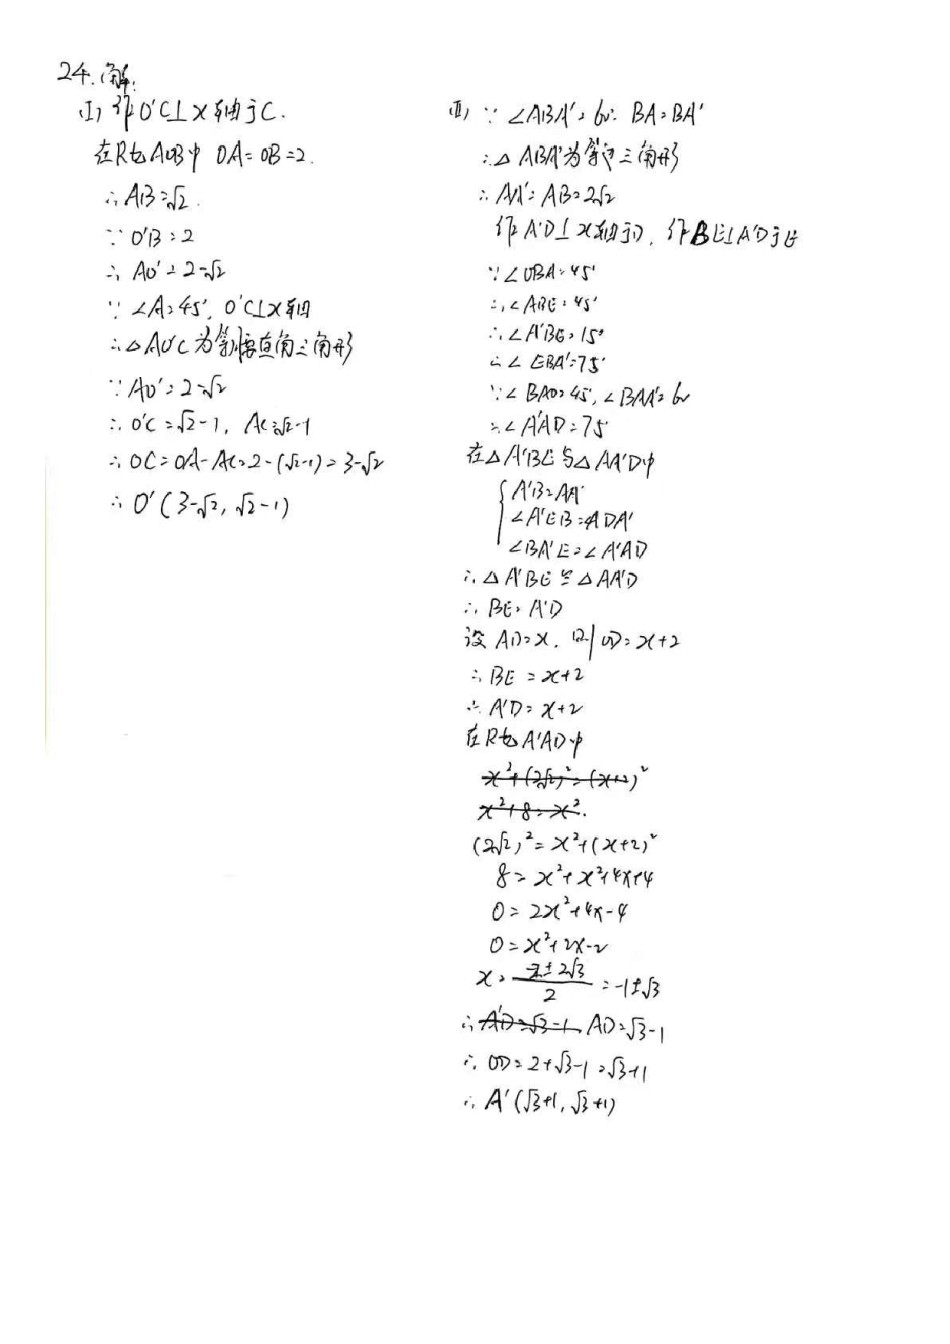 24.解:
(I) 作O'C⊥x轴于C.
在Rt△AOB中 OA=OB=2.
∴AB=√2.
∵O'B=2
∴AO'=2-√2
∵∠A=45°, O'C⊥x轴
∴△AO'C为等腰直角三角形
∵AO'=2-√2
∴O'C=√2-1, AC=√2-1
∴OC=OA-AC=2-(√2-1)=3-√2
∴O'(3-√2, √2-1)
(II) ∵∠ABA'=60° BA=BA'
∴△ABA'为等边三角形
∴AA'=AB=2√2
作A'D⊥x轴于D, 作BE⊥A'D于E
∵∠OBA=45°
∴∠ABE=45°
∴∠A'BE=15°
∴∠EBA'=75°
∵∠BAO=45°, ∠BAA'=60
∴∠A'AD=75°
在△A'BE与△AA'D中
{A'B=AA'
∠A'EB=ADA'
∠BA'E=∠A'AD
∴△A'BE≌△AA'D
∴BE=A'D
设AD=x, 则OD=x+2
∴BE=x+2
∴A'D=x+2
在Rt△A'AD中
x²+(2√2)²=(x+2)²
x²+8=x².
(2√2)²=x²+(x+2)²
8=x²+x²+4x+4
0=2x²+4x-4
0=x²+2x-2
x=(-2±2√3)/2=-1±√3
∴A'D=√3-1, AD=√3-1
∴OD=2+√3-1=√3+1
∴A'(√3+1, √3+1)